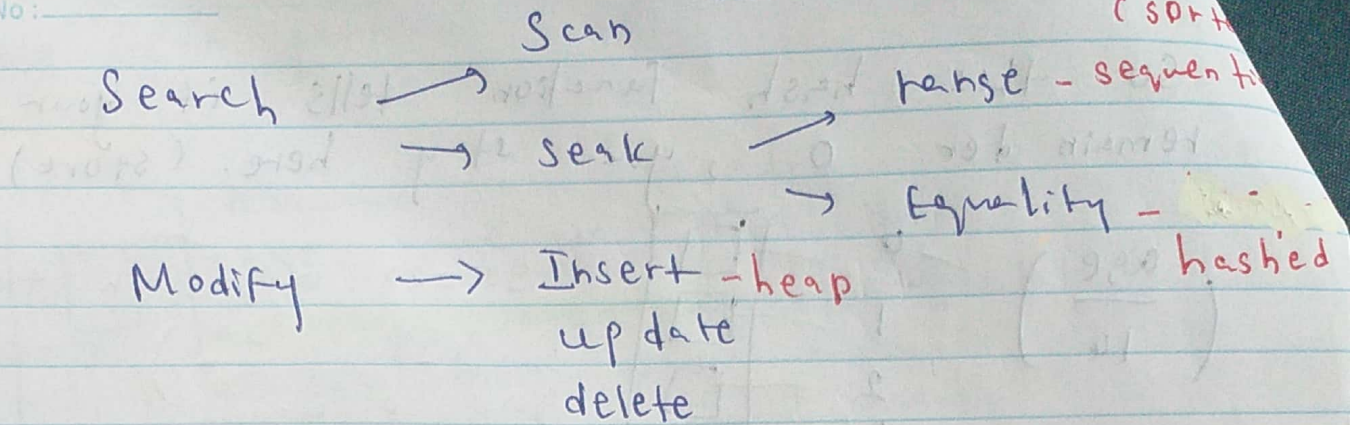 No:
Scan
(sort
Search → range - sequenti
→ seak →
→ Equality -
hashed
Modify → Insert - heap
update
delete